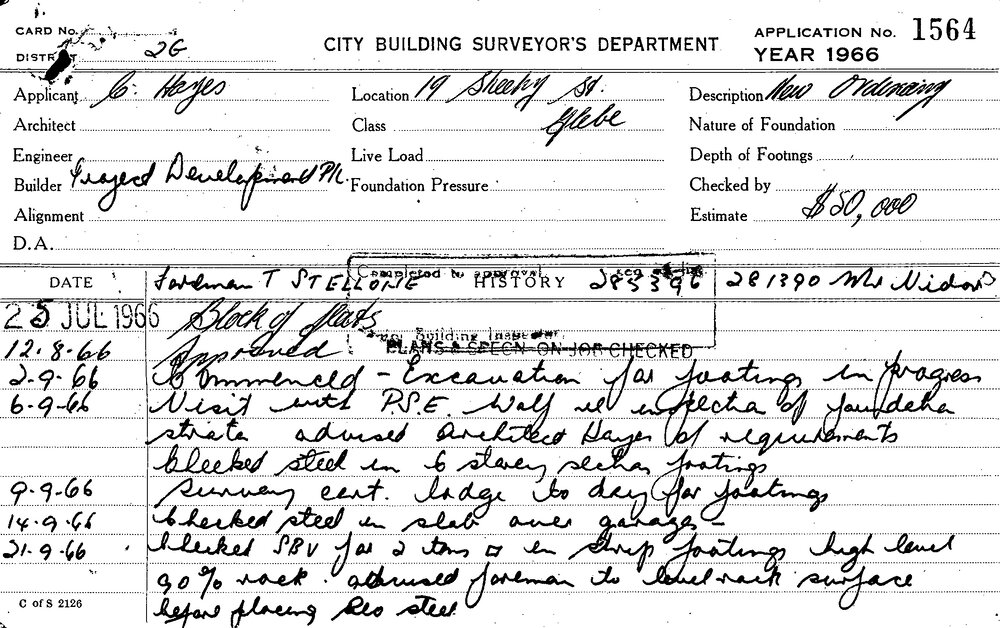 CARD No.
CITY BUILDING SURVEYOR'S DEPARTMENT
APPLICATION No. 1564
DISTRICT 2G
YEAR 1966
Applicant C. Hayes
Location 19 Sheehy St.
Description New Ordinary
Architect
Class Glebe
Nature of Foundation
Engineer
Live Load
Depth of Footings
Builder Project Development P/L.
Foundation Pressure
Checked by
Alignment
Estimate $50,000
D.A.
Completed to approval
DATE
Foreman T STELLONE
HISTORY
283396
281390 Mr
25 JUL 1966 Block of flats
Building Inspector
12.8.66 Approved
PLANS & SPECN. ON JOB CHECKED
2-9-66 Commenced - Excavation for footings in progress
6-9-66 Visit with P.S.E. Wolf re inspection of foundation
strata advised architect Hayes of requirements
Checked steel in 6 storey section footings
9-9-66 Survey cert. lodge to day for footings
14-9-66 Checked steel in slab over garages -
21-9-66 Checked SBV for 2 tons in strip footings high level
90% rock. advised foreman to level rock surface
before placing Reo steel
C of S 2126